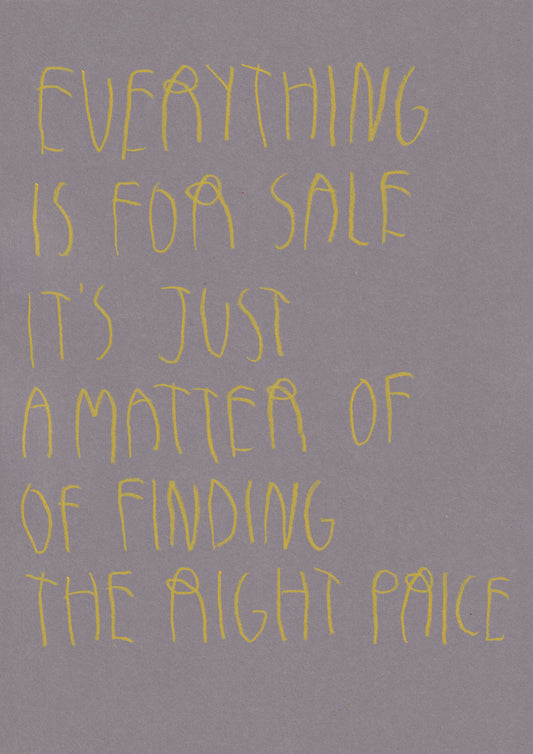 EVERYTHING
IS FOR SALE
IT'S JUST
A MATTER OF
OF FINDING
THE RIGHT PRICE